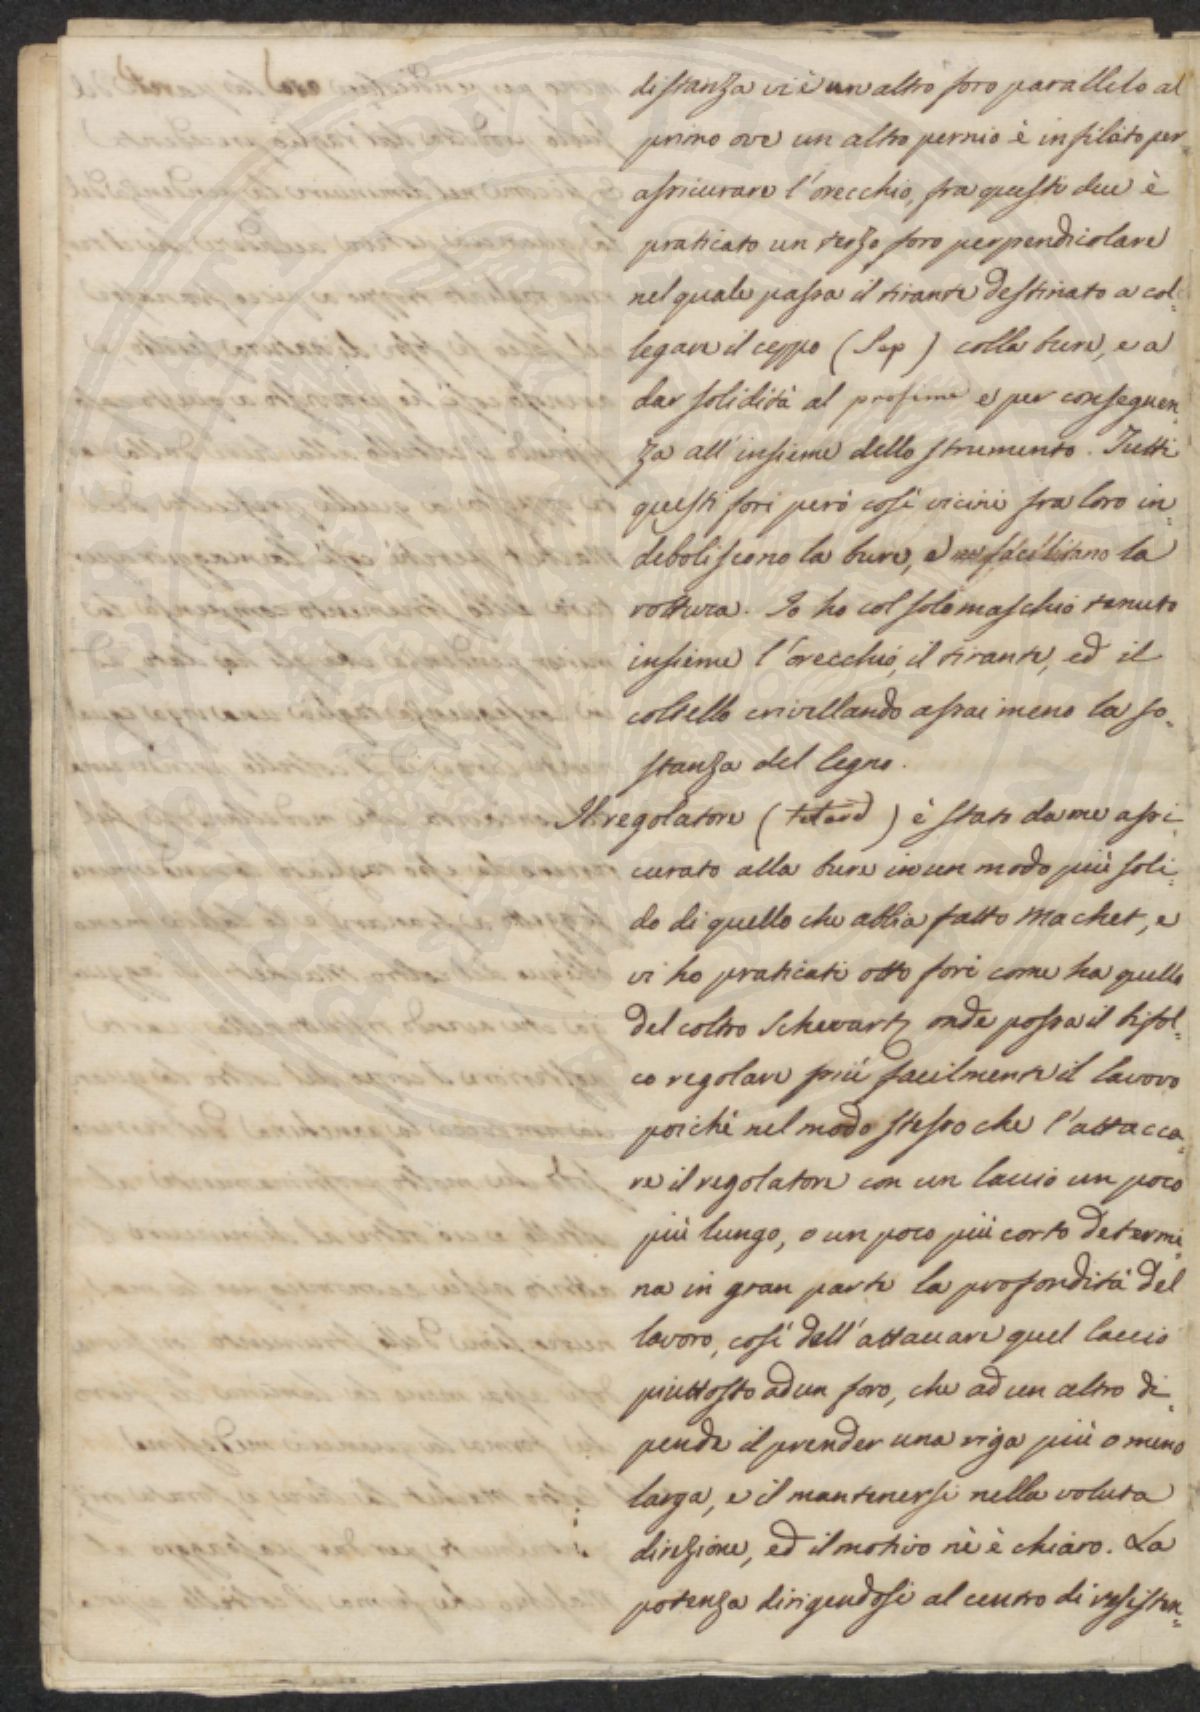 distanza vi è un altro foro parallelo al
primo ove un altro pernio è infilato per
assicurare l'orecchio, fra questi due è
praticato un terzo foro perpendicolare
nel quale passa il tirante destinato a col=
legare il ceppo (Sep) colla bure, e a
dar solidità al e per conseguen=
za all'insieme dello strumento. Tutti
questi fori però così vicini fra loro in=
deboliscono la bure, e ne facilitano la
rottura. Io ho col solo maschio tenuto
insieme l'orecchio, il tirante, ed il
coltello crivellando assai meno la so=
stanza del legno.
Il regolatore (tetard) è stato da me assi=
curato alla bure in un modo più soli=
do di quello che abbia fatto Machet, e
vi ho praticati otto fori come ha quello
del coltro Schwartz onde possa il bifol=
co regolare più facilmente il lavoro
poichè nel modo stesso che l'attacca=
re il regolatore con un laccio un poco
più lungo, o un poco più corto determi=
na in gran parte la profondità del
lavoro, così dall'attaccare quel laccio
piuttosto ad un foro, che ad un altro di=
pende il prender una riga più o meno
larga, e il mantenersi nella voluta
direzione, ed il motivo nè è chiaro. La
potenza dirigendosi al centro di resisten=